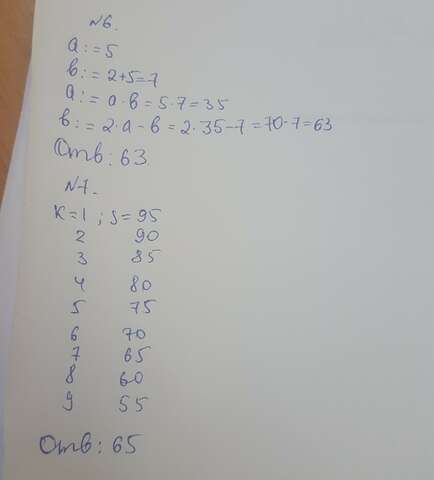 N6.
a:=5
b:=2+5=7
a:=a·b=5·7=35
b:=2·a-b=2·35-7=70-7=63
Отв: 63
N7.
K=1; S=95
2 90
3 85
4 80
5 75
6 70
7 65
8 60
9 55
Отв: 65